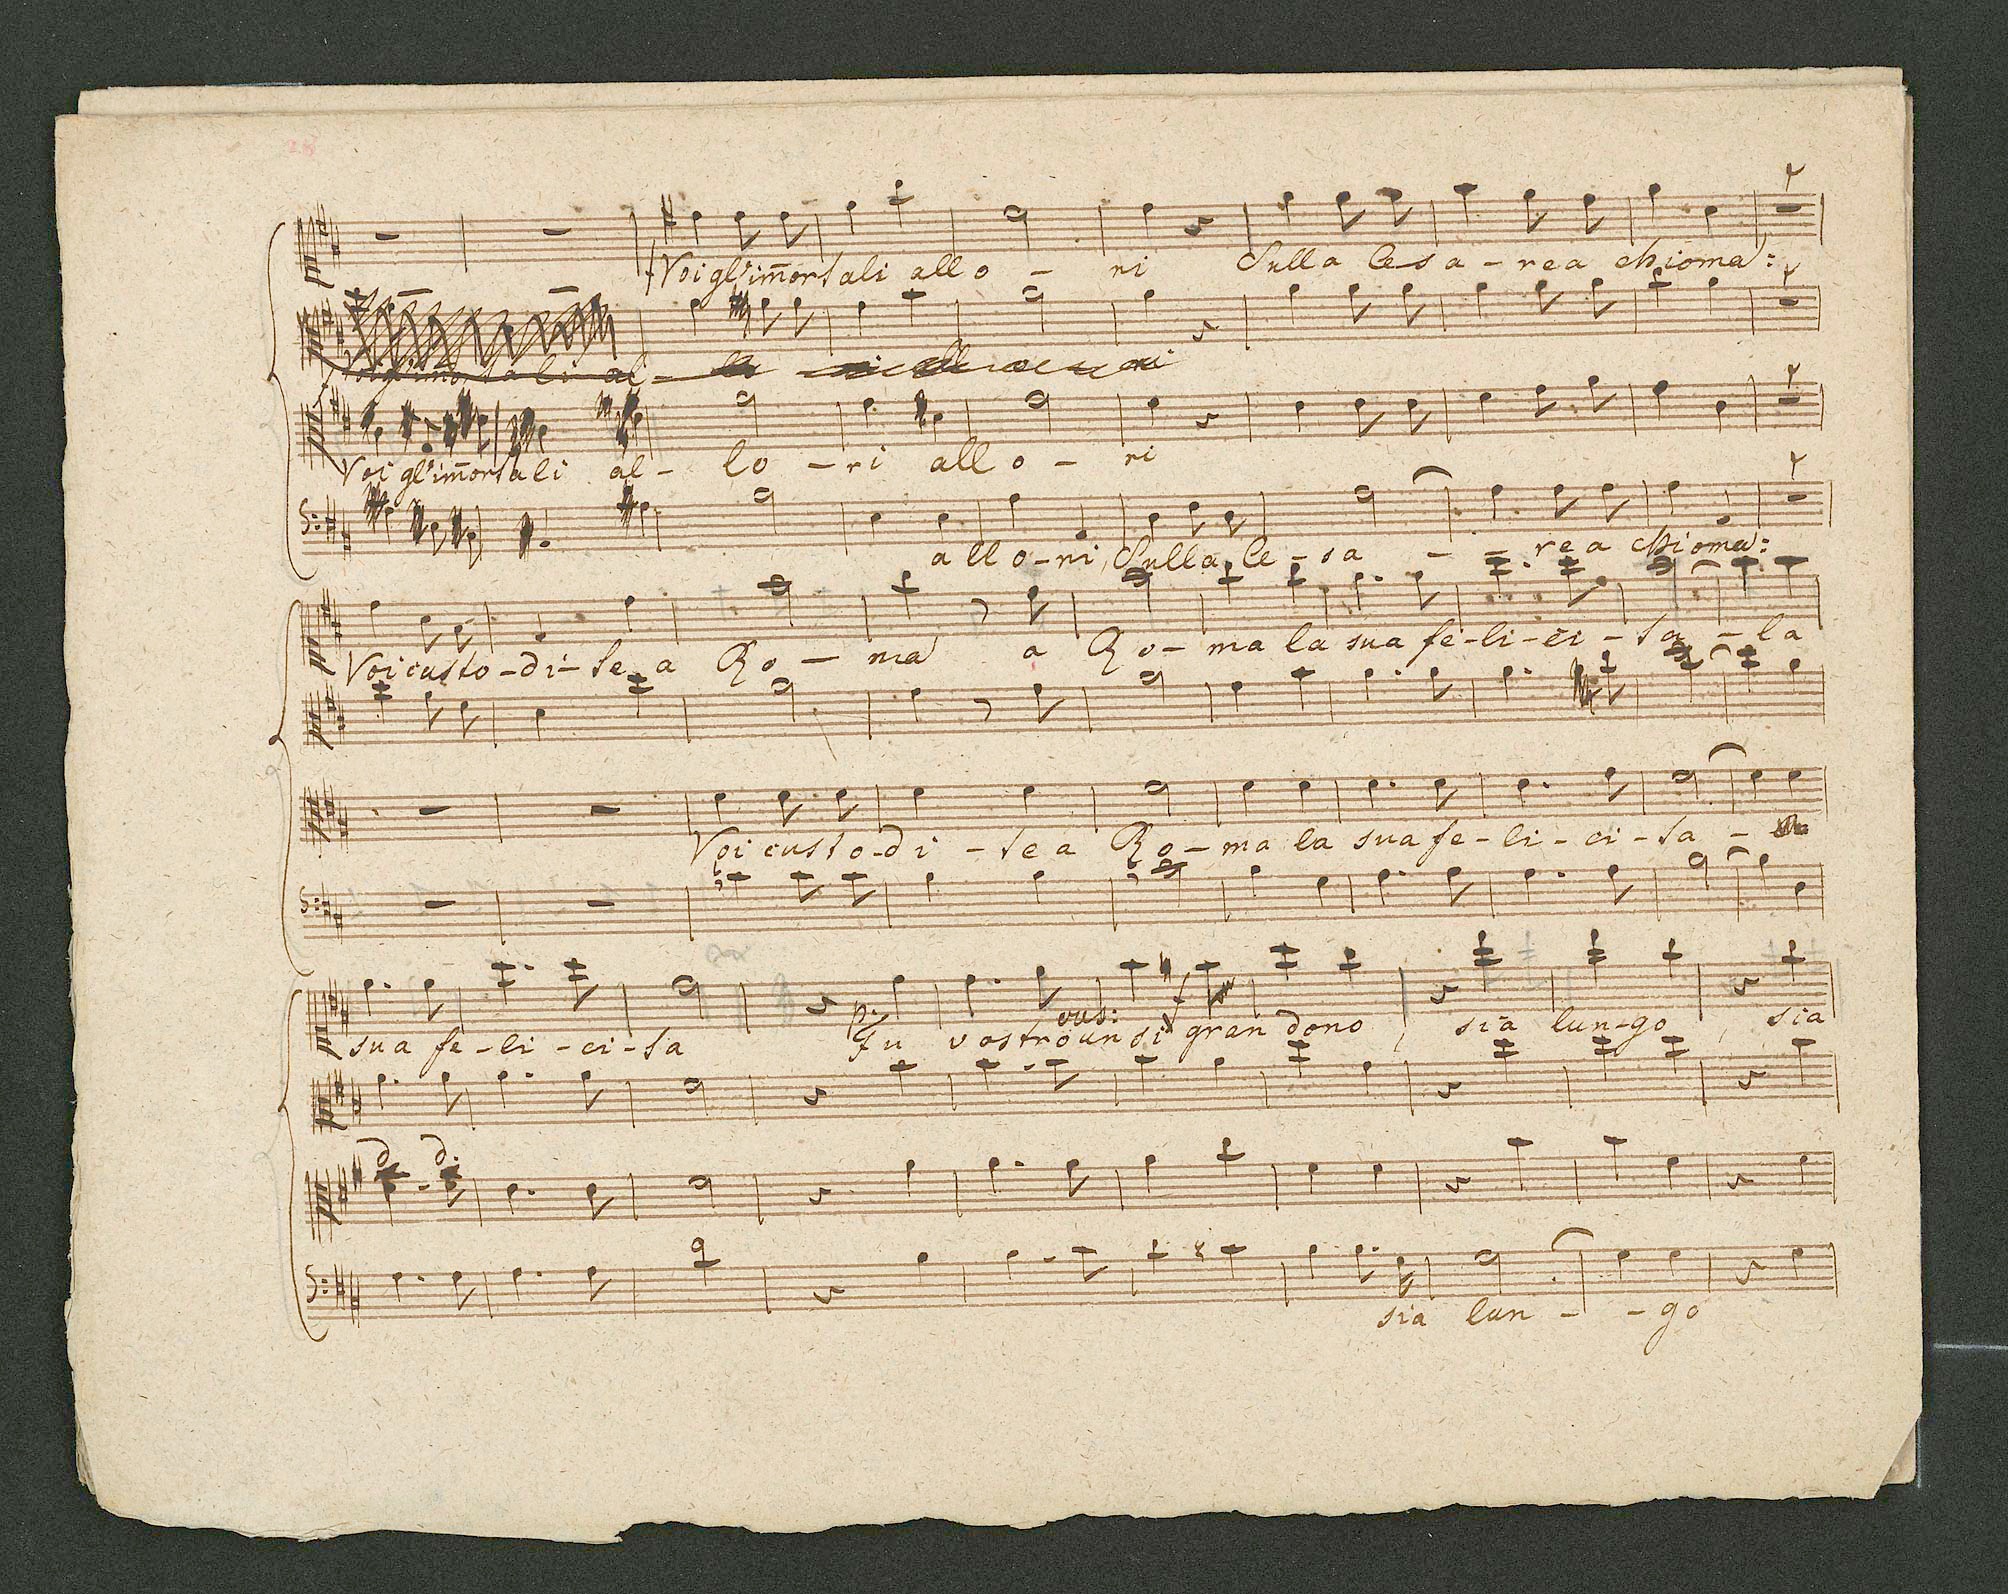 Voi gl'im̄ortali allo - ri Sulla Cesa - rea chioma:
Voi gl'im̄ortali al -
Voi gl'im̄ortali al - lo - ri allo - ri
allo - ri, Sulla Ce - sa - - rea chioma:
Voi custo - di - te a Ro - ma a Ro - ma la sua fe - li - ci - ta - la
Voi custo - di - te a Ro - ma la sua fe - li - ci - ta -
sua fe - li - ci - ta p. Fu vostro un si f gran dono, sia lun - go, sia
sia lun - - go